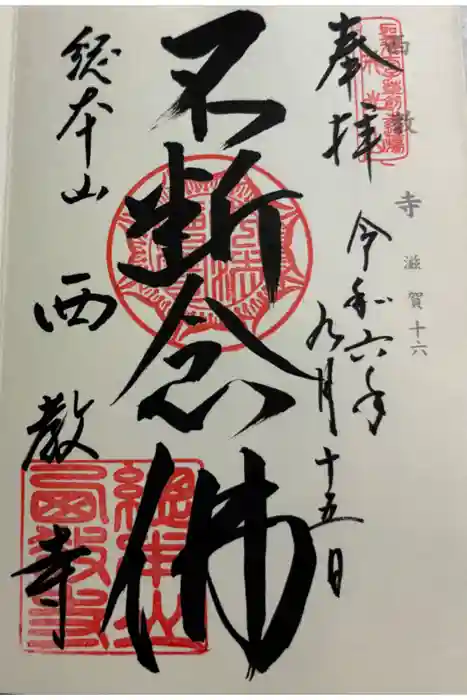 西教寺 滋賀十六
奉拝
令和六年
九月十五日
不断念佛
総本山
西教寺
總本山
西教寺